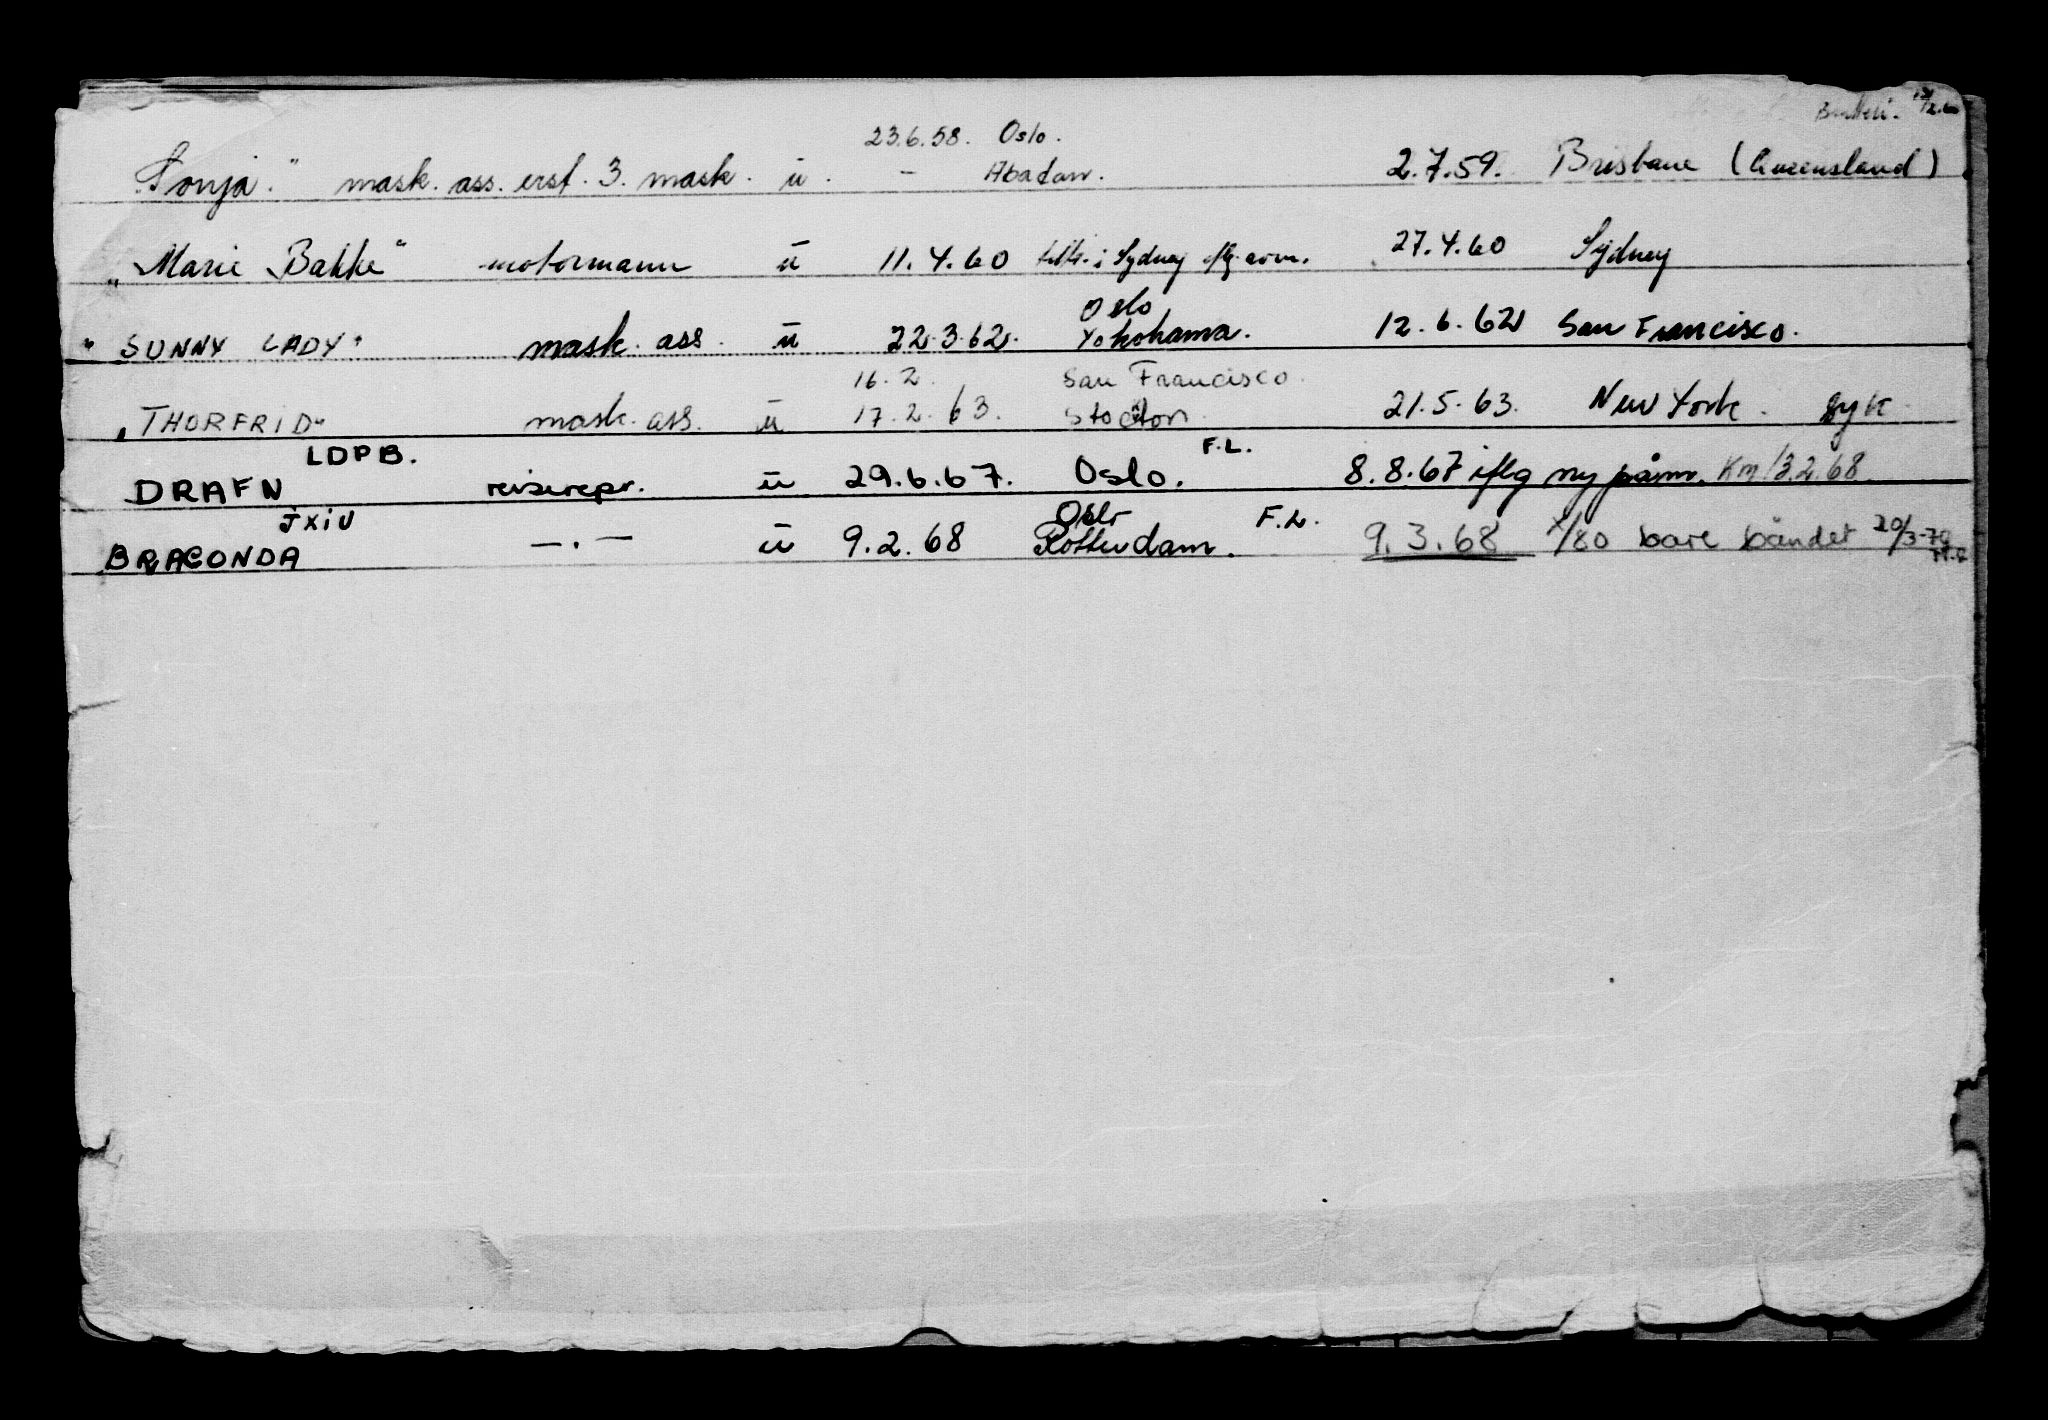 23.6.58. Oslo.
"Sonja." mask. ass. erst. 3. mask. ü. - Abadan. 2.7.59. Brisbane (Queensland)
"Marie Bakke" motormann ü 11.4.60 i Sydney 27.4.60 Sydney
Oslo
"SUNNY LADY" mask. ass. ü 22.3.62. Yokohama. 12.6.62 San Francisco.
16.2. San Francisco.
"THORFRID" mask. ass. ü 17.2.63. Stockton. 21.5.63. New York. syk
LDPB. F.L.
DRAFN reiserepr. ü 29.6.67. Oslo. 8.8.67 iflg ny påm. Km/3.2.68
JXIU Oslo F.L.
BRAGONDA —.— ü 9.2.68 Rotterdam. 9.3.68 1/80 bare båndet 20/3-79